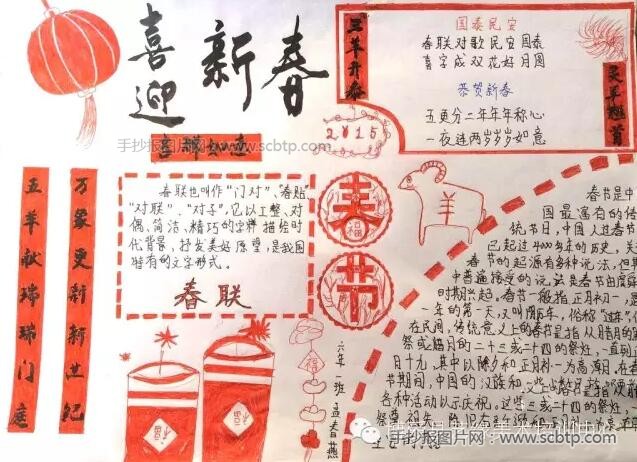 喜迎新春
手抄报图片网 www.scbtp.com
喜群如意
三羊开泰
灵羊翘首
国泰民安
春联对歌民安国泰
喜字成双花好月圆
恭贺新春
五更分二年年年称心
一夜连两岁岁岁如意
2015
万象更新新世纪
五羊献瑞瑞门庭
春联也叫作"门对"、春贴
"对联"、"对子",它以工整、对
偶、简洁、精巧的字样描绘时
代背景,抒发美好愿望,是我国
特有的文字形式。
春联
春
福
节
羊
福
福
福
六年一班 孟春燕
春节是中
国最富有的传
统节日,中国人过春节
已起过4000多年的历史,关
春节的起源有多种说法,但其
中普遍接受的说法是春节由虞舜
时期兴起。春节一般指正月初一,是
一年的第一天,又叫阴历年,俗称"过年"
在民间,传统意义上的春节是指从腊月的
祭或腊月的二十三或二十四的祭灶,一直到
月十九,其中以除夕和正月初一为高潮,在春
节期间,中国的汉族和一些少数民族都要
各种活动以示庆祝。
手抄报图片网 www.scbtp.com